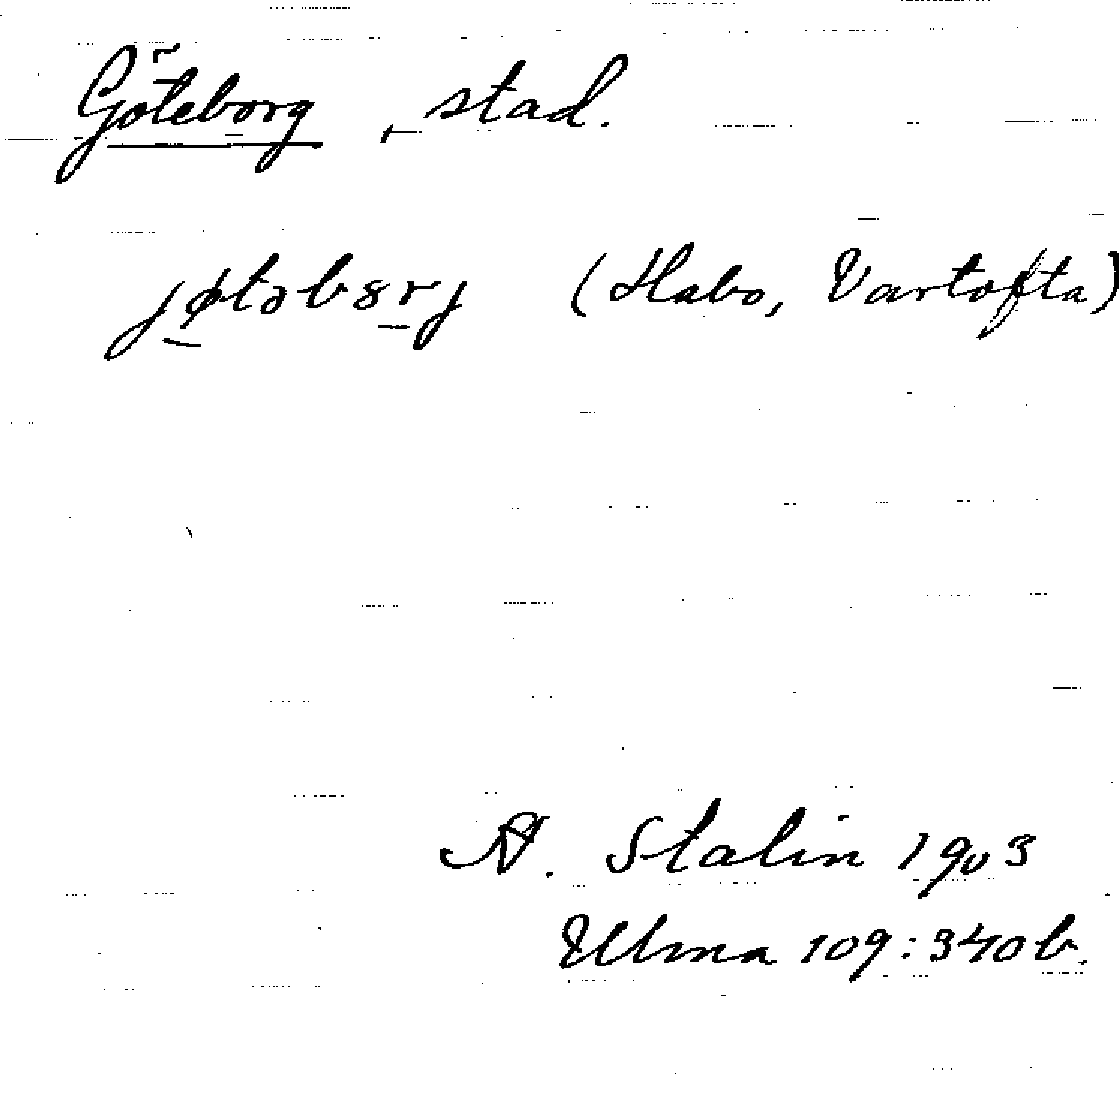 Göteborg, stad.
jøtəbɞrj (Habo, Vartofta)
A. Stalin 1903
Ulma 109:340b.